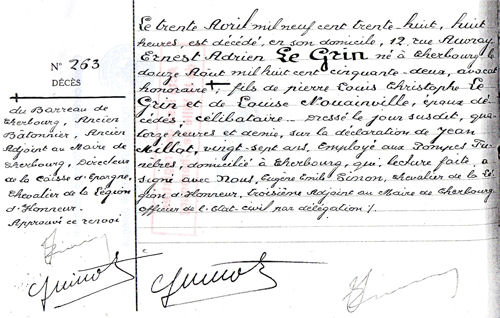 Nº 263
DÉCÈS
du Barreau de
Cherbourg, Ancien
Bâtonnier, Ancien
Adjoint au Maire de
Cherbourg, Directeur
de la Caisse d'Epargne,
Chevalier de la Légion
d'Honneur.
Approuvé ce renvoi
Le trente Avril mil neuf cent trente-huit, huit
heures, est décédé, en son domicile, 12, rue Auvray
Ernest Adrien Le Grin né à Cherbourg le
douze Août mil huit cent cinquante-deux, avocat
honoraire, fils de pierre Louis Christophe Le
Grin et de Louise Nouainville, époux dé-
cédés, célibataire. Dressé le jour susdit, qua-
torze heures et demie, sur la déclaration de Jean
vingt-sept ans, Employé aux Pompes Fu-
nèbres, domicilié à Cherbourg, qui, lecture faite, a
signé avec Nous, Eugène Emile Simon, Chevalier de la Lé-
gion d'Honneur, troisième Adjoint au Maire de Cherbourg
officier de l'Etat-civil par délégation /.